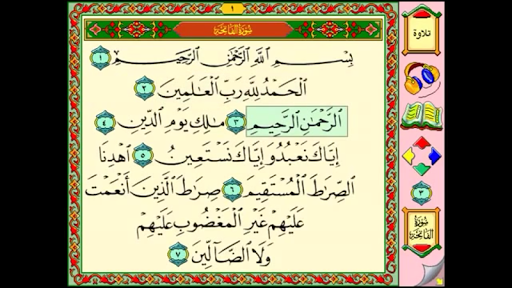 ١
سُورَةُ الْفَاتِحَةِ
بِسْمِ اللَّهِ الرَّحْمَٰنِ الرَّحِيمِ ١
الْحَمْدُ لِلَّهِ رَبِّ الْعَالَمِينَ ٢
الرَّحْمَٰنِ الرَّحِيمِ ٣ مَٰلِكِ يَوْمِ الدِّينِ ٤
إِيَّاكَ نَعْبُدُ وَإِيَّاكَ نَسْتَعِينُ ٥ اهْدِنَا
الصِّرَاطَ الْمُسْتَقِيمَ ٦ صِرَاطَ الَّذِينَ أَنْعَمْتَ
عَلَيْهِمْ غَيْرِ الْمَغْضُوبِ عَلَيْهِمْ
وَلَا الضَّالِّينَ ٧
تلاوة
٣
سُورَةُ
الْفَاتِحَةِ